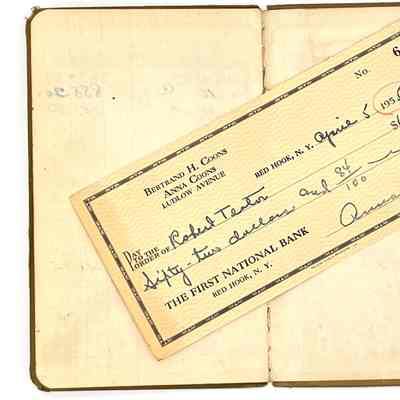 6
No.
BERTRAND H. COONS
ANNA COONS
LUDLOW AVENUE
RED HOOK, N. Y. April 5 195
PAY TO THE
ORDER OF Robert Teator
Sixty-two dollars and 84/100
THE FIRST NATIONAL BANK
RED HOOK, N.Y.
Anna